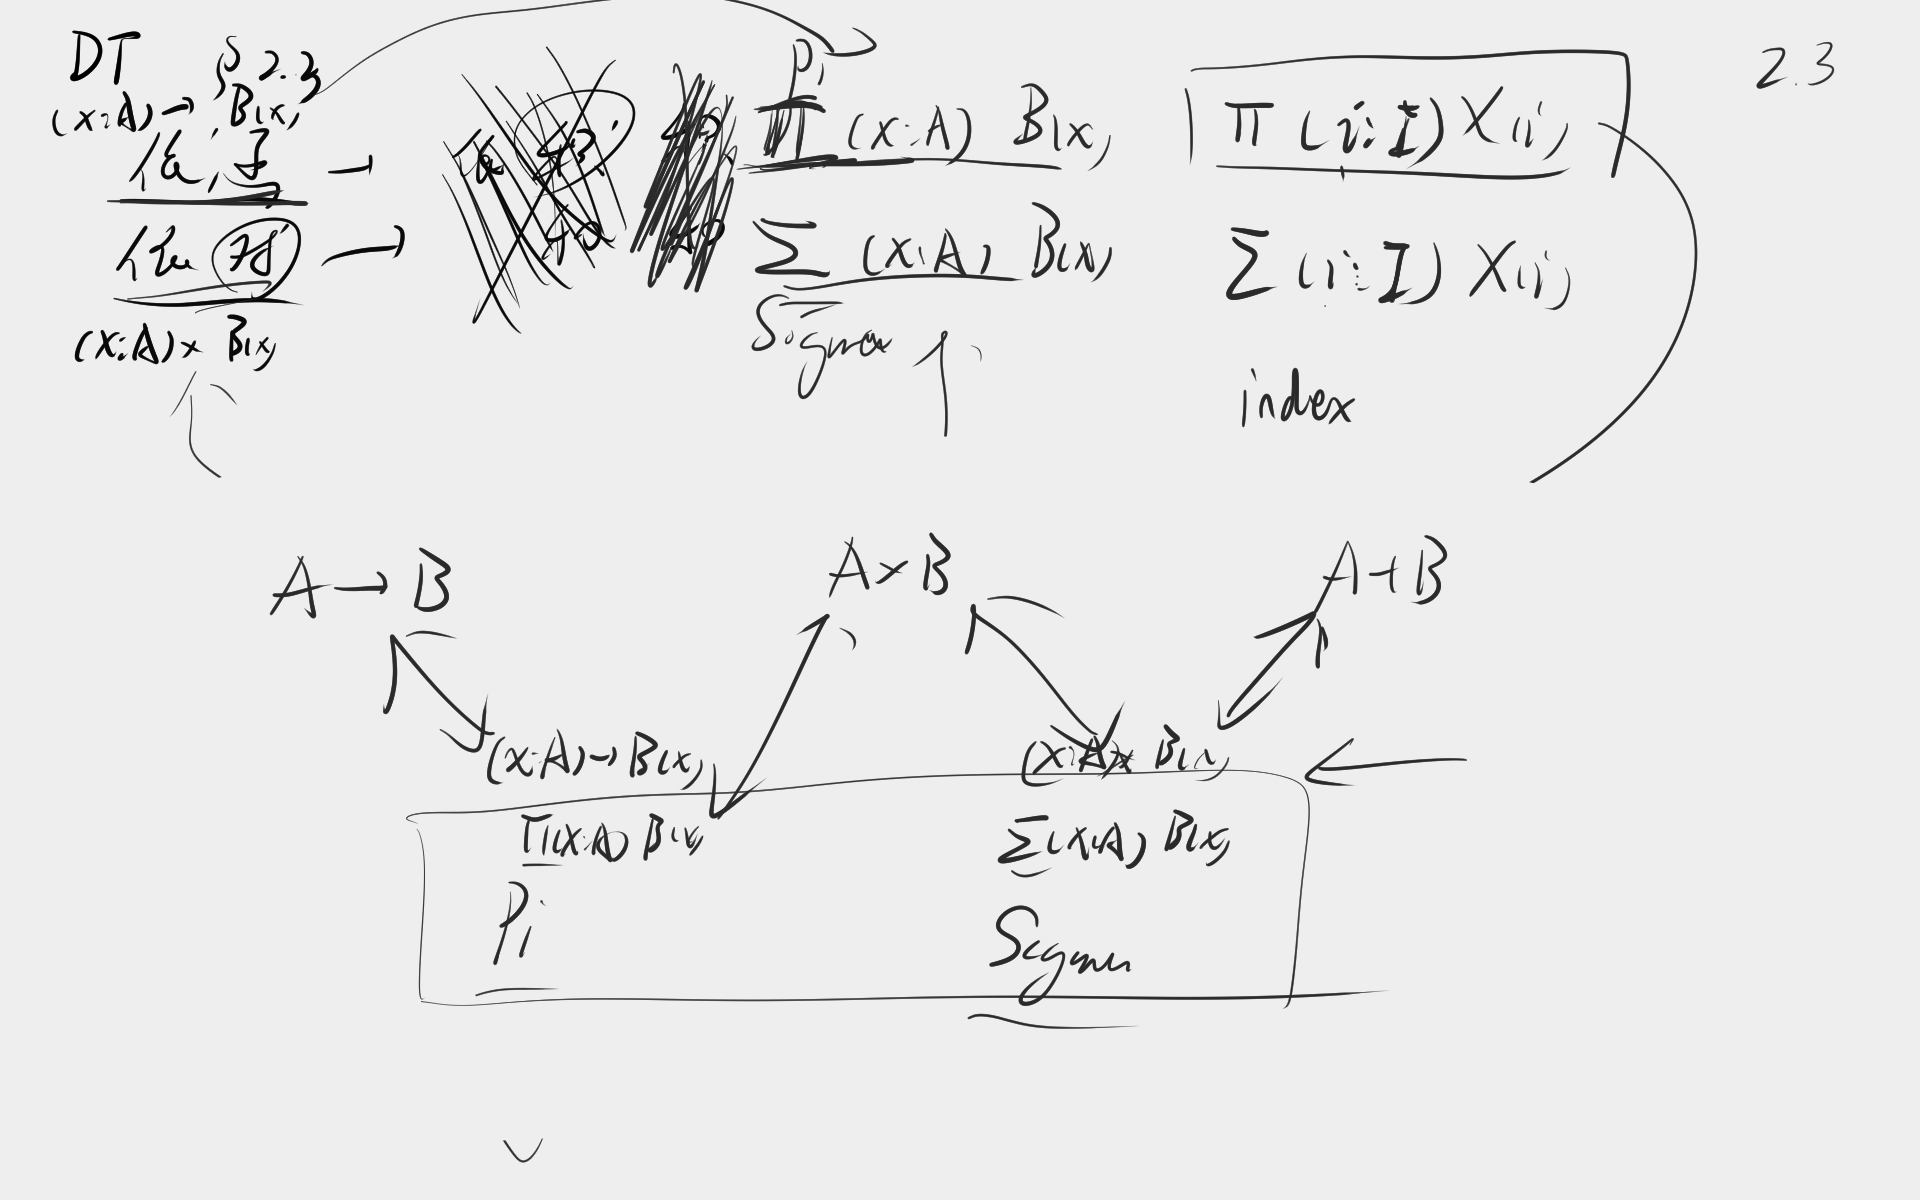 DT § 2.3
(x:A) → B(x)
依,函 →
依 对 →
(x:A) × B(x)
Pi
Π (x:A) B(x)
Σ (x:A) B(x)
Sigma
Π (i:I) X(i)
Σ (i:I) X(i)
index
2.3
A → B
A × B
A + B
(x:A) → B(x)
(x:A) × B(x)
Π(x:A) B(x)
Σ(x:A) B(x)
Pi
Sigma